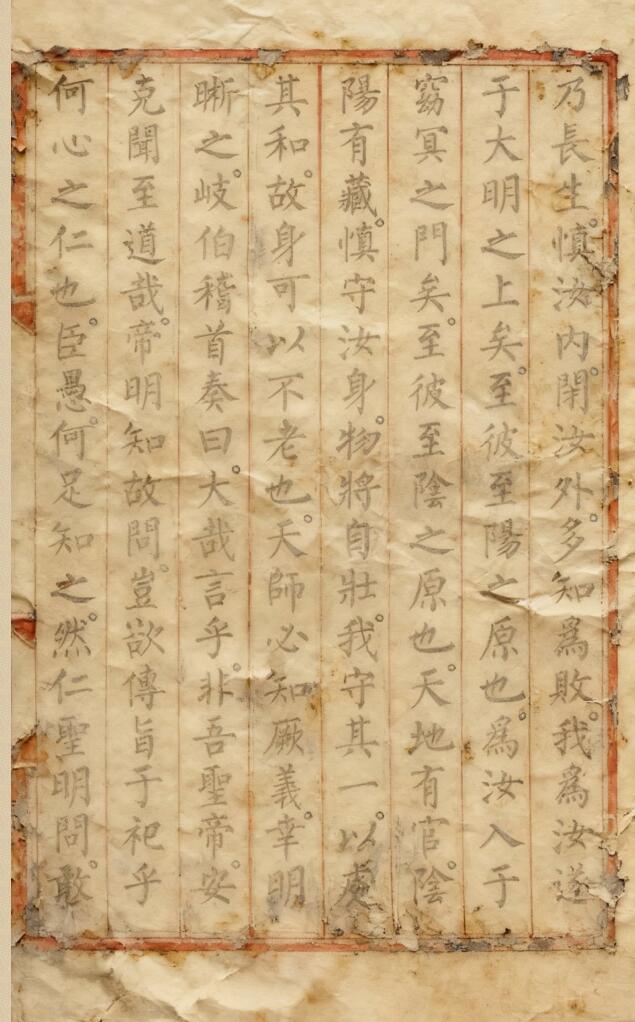 乃長生。慎汝内。閉汝外。多知爲敗。我爲汝遂
于大明之上矣。至彼至陽之原也。爲汝入于
窈冥之門矣。至彼至陰之原也。天地有官。陰
陽有藏。慎守汝身。物將自壯。我守其一。以處
其和。故身可以不老也。天師必知厥義。幸明
晰之。岐伯稽首奏曰。大哉言乎。非吾聖帝。安
克聞至道哉。帝明知故問。豈欲傳旨于祀乎
何心之仁也。臣愚。何足知之。然仁聖明問。敢